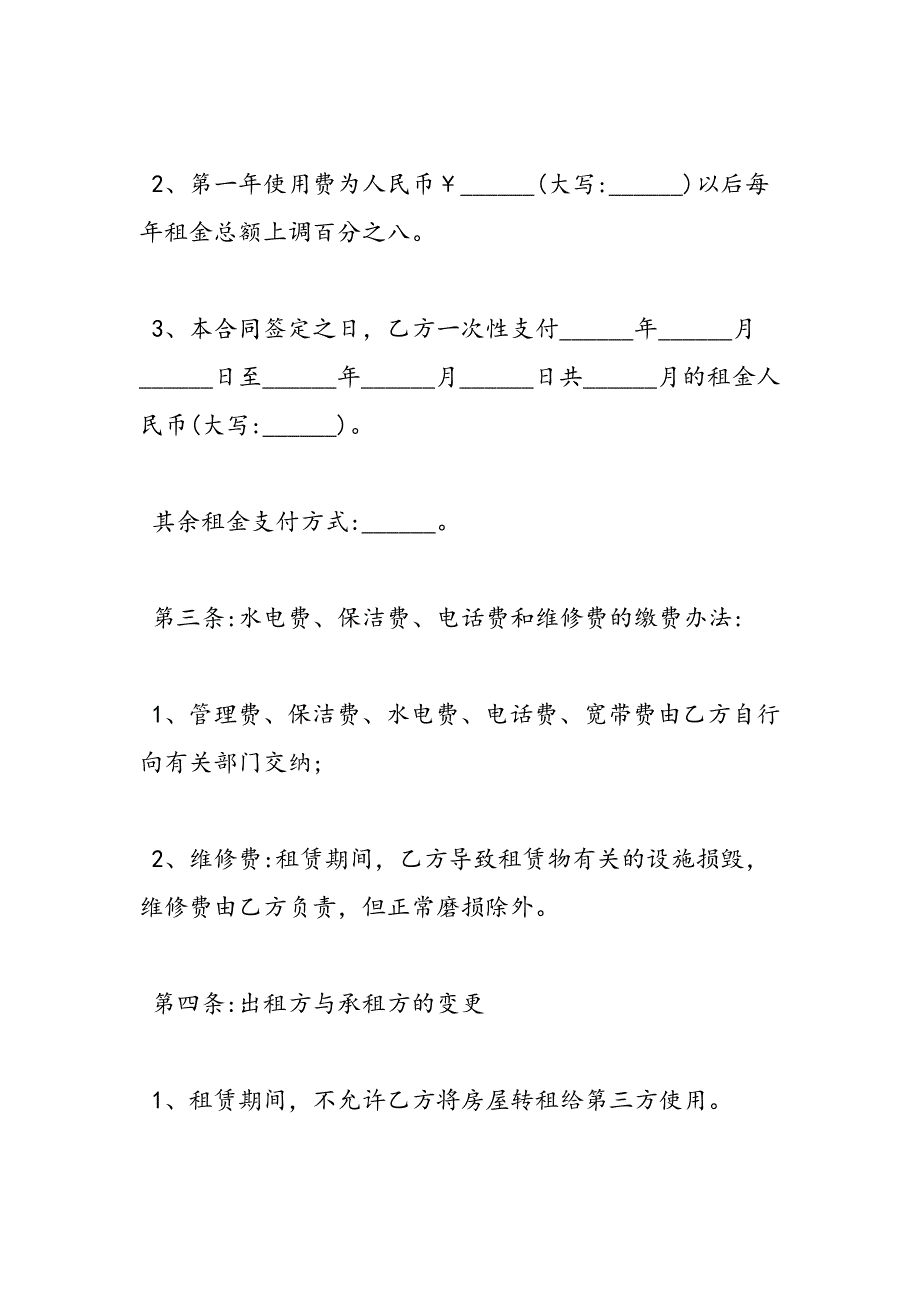 2、第一年使用费为人民币￥______(大写:______)以后每
年租金总额上调百分之八。
3、本合同签定之日，乙方一次性支付______年______月
______日至______年______月______日共______月的租金人
民币(大写:______)。
其余租金支付方式:______。
第三条:水电费、保洁费、电话费和维修费的缴费办法:
1、管理费、保洁费、水电费、电话费、宽带费由乙方自行
向有关部门交纳;
2、维修费:租赁期间，乙方导致租赁物有关的设施损毁，
维修费由乙方负责，但正常磨损除外。
第四条:出租方与承租方的变更
1、租赁期间，不允许乙方将房屋转租给第三方使用。